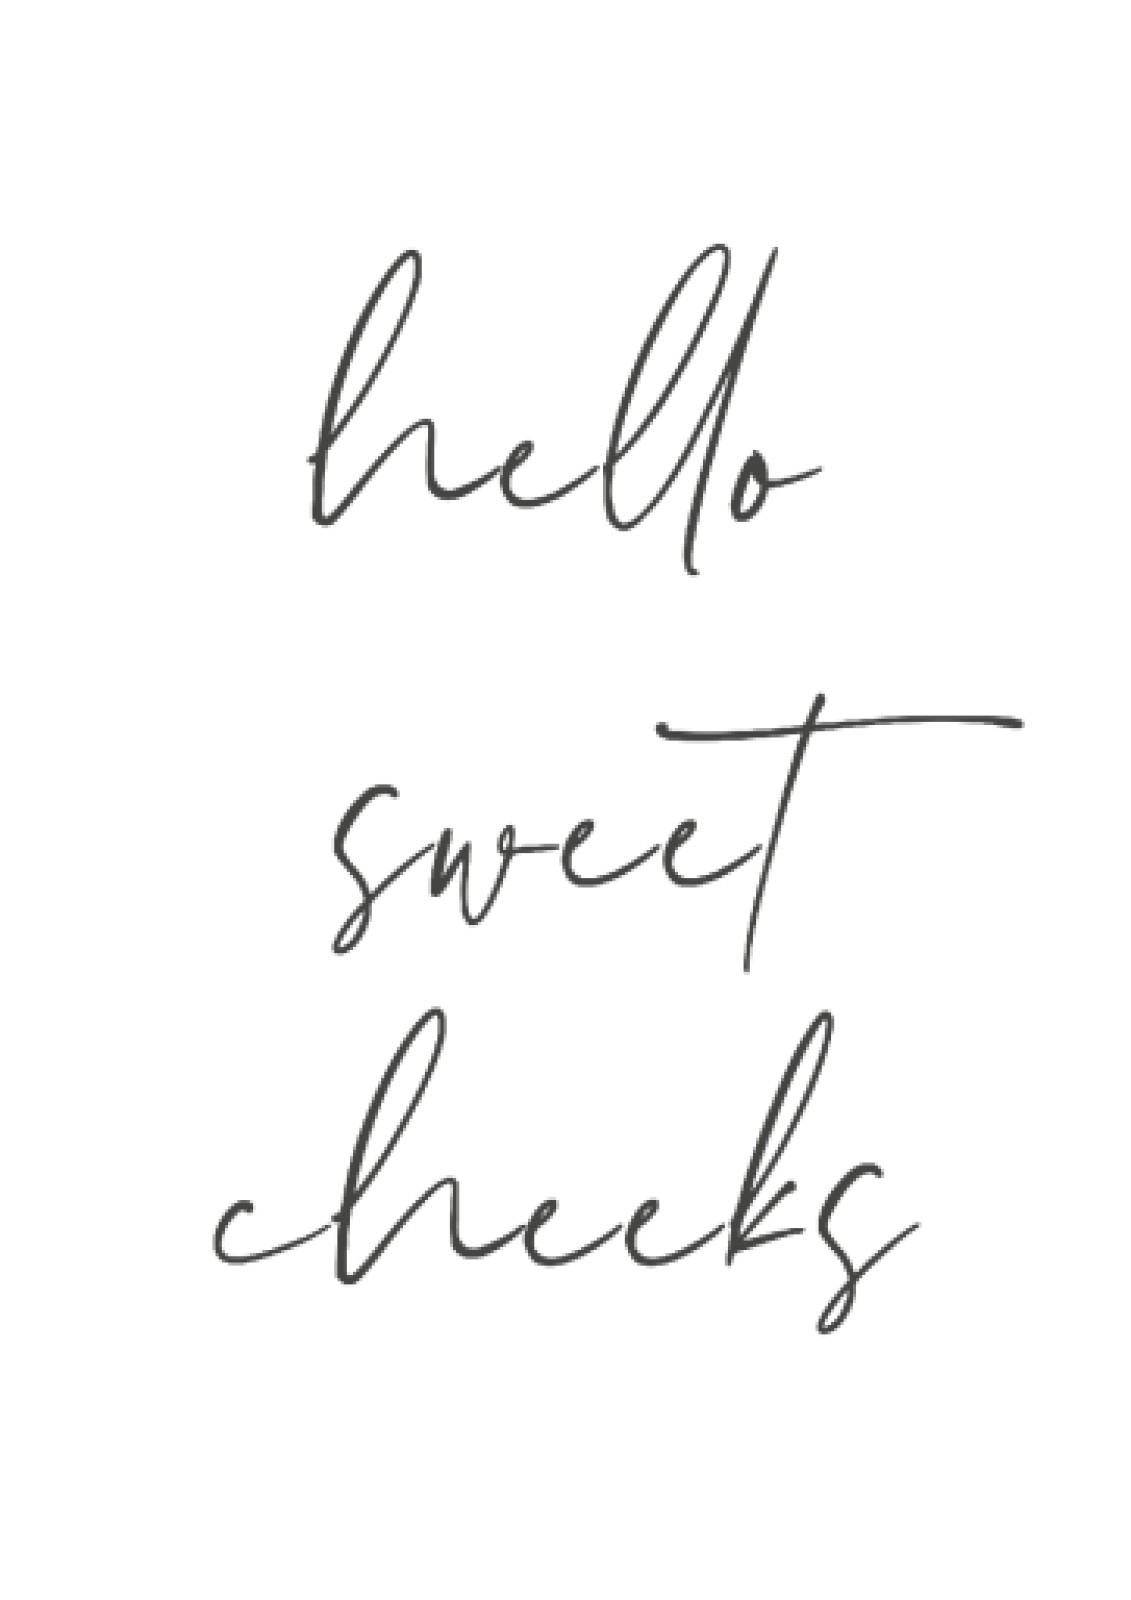 hello
sweet
cheeks